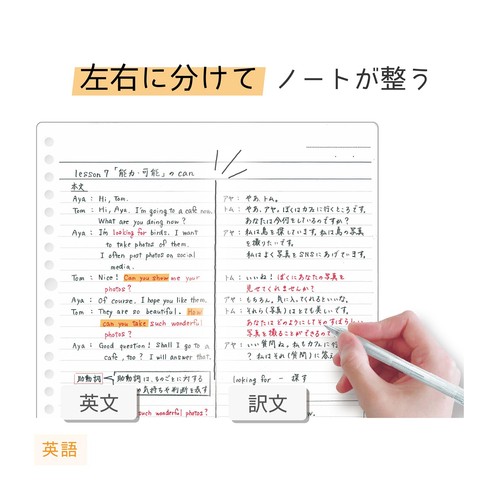 左右に分けて ノートが整う
lesson 7 「能力・可能」の can
本文
Aya : Hi, Tom.
Tom : Hi, Aya. I'm going to a cafe now.
What are you doing now?
Aya : I'm looking for birds. I want
to take photos of them.
I often post photos on social
media.
Tom : Nice! Can you show me your
photos?
Aya : Of course. I hope you like them.
Tom : They are so beautiful. How
can you take such wonderful
photos?
Aya : Good question! Shall I go to a
cafe, too? I will answer that.
助動詞
助動詞は、ものごとに対する
気持ちや判断を表す
such wonderful photos?
アヤ : やあ、トム。
トム : やあ、アヤ。ぼくはカフェに行くところです。
あなたは今何をしているのですか?
アヤ : 私は鳥を探しています。私は鳥の写真
を撮りたいです。
私はよく写真をSNSにあげています。
トム : いいね! ぼくにあなたの写真を
見せてくれませんか?
アヤ : もちろん。気に入ってくれるといいな。
トム : それら(写真)はとても美しいです。
あなたはどのようにしてそのすばらしい
写真を撮ることができるので
アヤ : いい質問ね。私もカフェに行
? 私はそれ(質問)に答え
looking for － 探す
英文
訳文
英語